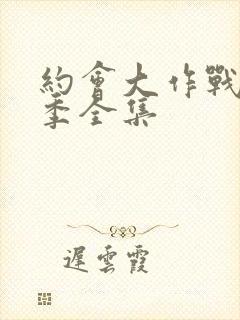 約會大作戰
季全集
遲雲霞